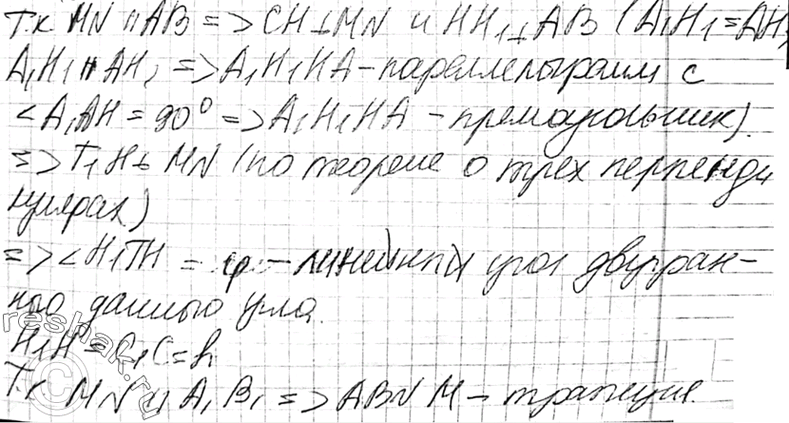 Т.к. MN ∥ AB => CH ⊥ MN и HH₁ ⊥ AB (A₁H₁ = AH,
A₁H₁ ∥ AH, => A₁H₁HA - параллелограмм с
∠A₁AH = 90° => A₁H₁HA - прямоугольник).
=> T₁H ⊥ MN (по теореме о трех перпенди
кулярах)
=> ∠H₁TH = φ - линейный угол двугран-
ного данного угла.
H₁H = C₁C = h
Т.к. MN ∥ A₁B₁ => ABNM - трапеция.
reshak.ru